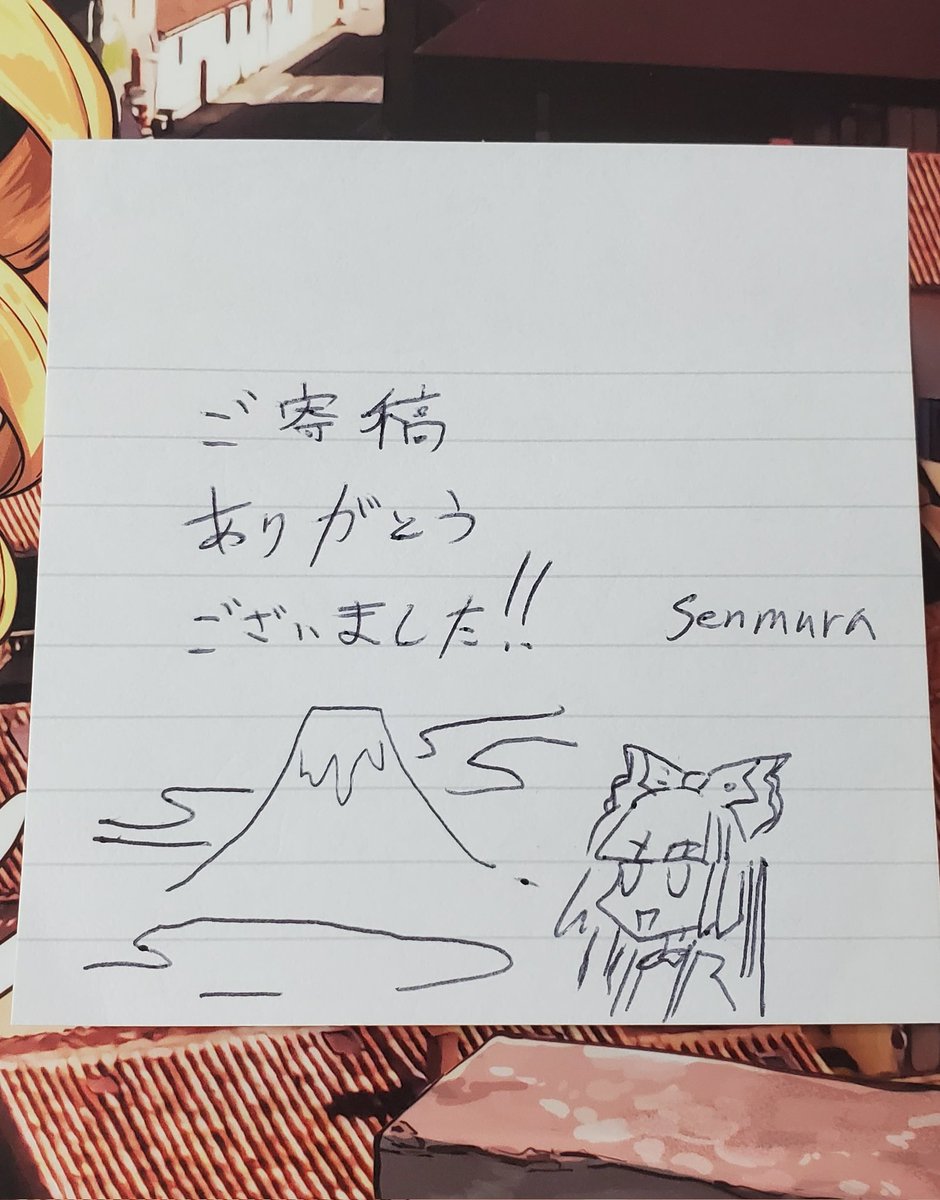 ご寄稿
ありがとう
ございました!!
Senmura